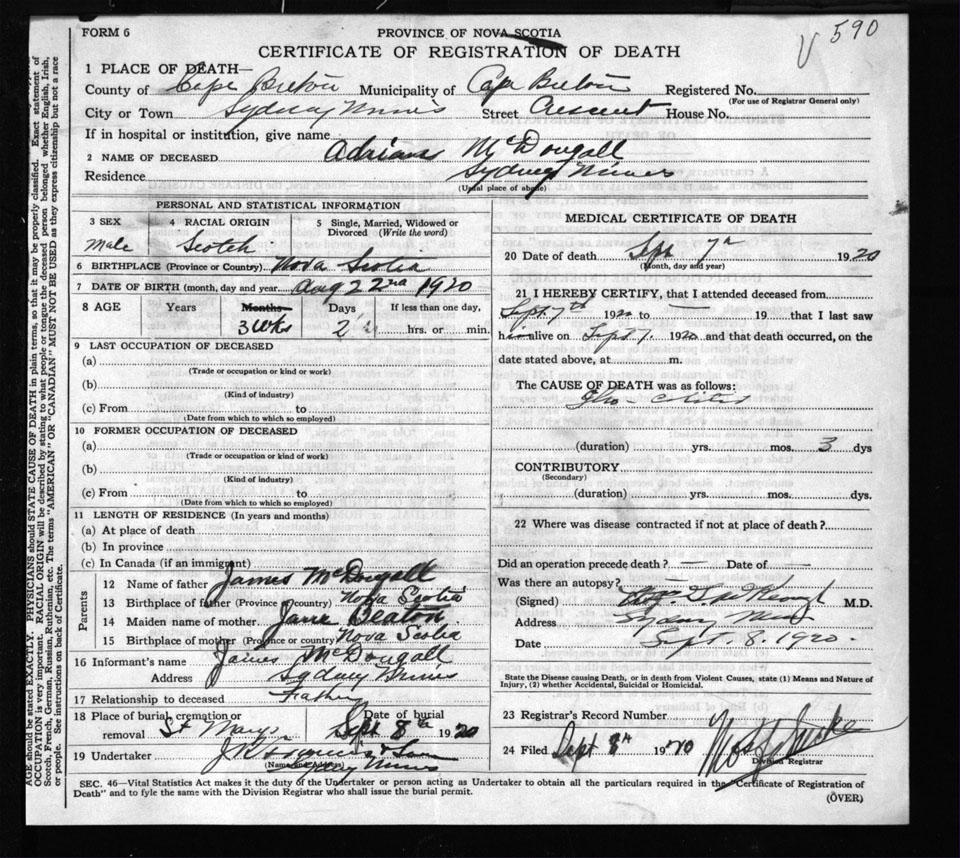 FORM 6
PROVINCE OF NOVA SCOTIA
590
CERTIFICATE OF REGISTRATION OF DEATH
1 PLACE OF DEATH—
County of Cape Breton Municipality of Cape Breton Registered No.
(For use of Registrar General only)
City or Town Sydney Mines Street Crescent House No.
If in hospital or institution, give name
2 NAME OF DECEASED Adrian McDougall
Residence Sydney Mines
(Usual place of abode)
PERSONAL AND STATISTICAL INFORMATION
3 SEX 4 RACIAL ORIGIN 5 Single, Married, Widowed or Divorced (Write the word)
Male Scotch
6 BIRTHPLACE (Province or Country) Nova Scotia
7 DATE OF BIRTH (month, day and year) Aug 22nd 1920
8 AGE Years Months Days If less than one day,
3 wks 2 hrs. or min.
9 LAST OCCUPATION OF DECEASED
(a)
(Trade or occupation or kind or work)
(b)
(Kind of industry)
(c) From to
(Date from which to which so employed)
10 FORMER OCCUPATION OF DECEASED
(a)
(Trade or occupation or kind of work)
(b)
(Kind of industry)
(c) From to
(Date from which to which so employed)
11 LENGTH OF RESIDENCE (In years and months)
(a) At place of death
(b) In province
(c) In Canada (if an immigrant)
Parents
12 Name of father James McDougall
13 Birthplace of father (Province or country) Nova Scotia
14 Maiden name of mother Jane Beaton
15 Birthplace of mother (Province or country) Nova Scotia
16 Informant's name James McDougall
Address Sydney Mines
17 Relationship to deceased Father
18 Place of burial, cremation or removal St Marys Date of burial Sept 8th 1920
19 Undertaker & Son
(Name and address) Sydney Mines
MEDICAL CERTIFICATE OF DEATH
20 Date of death Sept 7th 1920
(Month, day and year)
21 I HEREBY CERTIFY, that I attended deceased from
Sept. 7th 1920 to — 19 that I last saw
him alive on Sept 7. 1920 and that death occurred, on the
date stated above, at m.
The CAUSE OF DEATH was as follows:
Ileo colitis
(duration) yrs. mos. 3 dys
CONTRIBUTORY
(Secondary)
(duration) yrs. mos. dys.
22 Where was disease contracted if not at place of death?
Did an operation precede death? — Date of —
Was there an autopsy? —
(Signed) M.D.
Address Sydney Mines
Date Sept. 8. 1920.
State the Disease causing Death, or in death from Violent Causes, state (1) Means and Nature of
Injury, (2) whether Accidental, Suicidal or Homicidal.
23 Registrar's Record Number
24 Filed Sept 8th 1920
Division Registrar
SEC. 46—Vital Statistics Act makes it the duty of the Undertaker or person acting as Undertaker to obtain all the particulars required in the "Certificate of Registration of
Death" and to fyle the same with the Division Registrar who shall issue the burial permit.
(OVER)
AGE should be stated EXACTLY. PHYSICIANS should STATE CAUSE OF DEATH in plain terms, so that it may be properly classified. Exact statement of
OCCUPATION is very important. RACIAL ORIGIN will be described by stating to what people or tongue the deceased person belonged whether English, Irish,
Scotch, French, German, Russian, Ruthenian, etc. The terms "AMERICAN" OR "CANADIAN" MUST NOT BE USED as they express citizenship but not a race
or people. See instructions on back of Certificate.